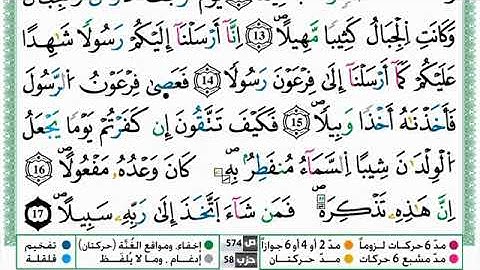 وَكَانَتِ الْجِبَالُ كَثِيبًا مَّهِيلًا ١٣ إِنَّا أَرْسَلْنَا إِلَيْكُمْ رَسُولًا شَاهِدًا
عَلَيْكُمْ كَمَا أَرْسَلْنَا إِلَىٰ فِرْعَوْنَ رَسُولًا ١٤ فَعَصَىٰ فِرْعَوْنُ الرَّسُولَ
فَأَخَذْنَاهُ أَخْذًا وَبِيلًا ١٥ فَكَيْفَ تَتَّقُونَ إِن كَفَرْتُمْ يَوْمًا يَجْعَلُ
الْوِلْدَانَ شِيبًا السَّمَاءُ مُنفَطِرٌ بِهِ كَانَ وَعْدُهُ مَفْعُولًا ١٦
إِنَّ هَٰذِهِ تَذْكِرَةٌ فَمَن شَاءَ اتَّخَذَ إِلَىٰ رَبِّهِ سَبِيلًا ١٧
مدّ ٦ حركات لزوماً مدّ ٢ أو ٤ أو ٦ جوازاً ص 574 إخفاء، ومواقع الغُنَّة (حركتان) تفخيم
مدّ مشبع ٦ حركات مدّ حركتان حزب 58 إدغام، وما لا يُلفَظ قلقلة